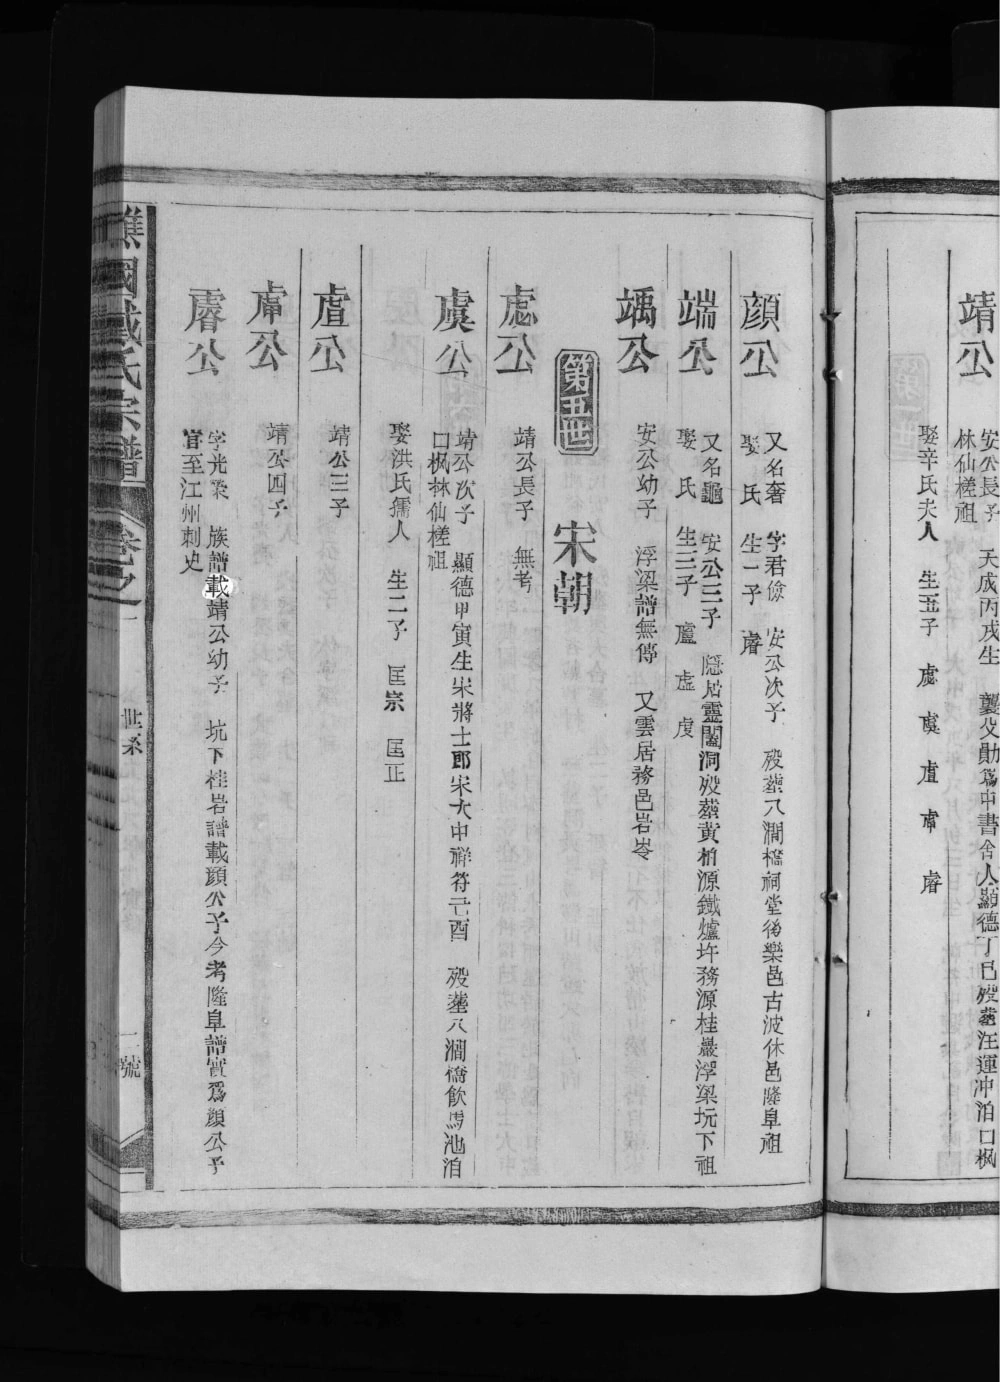 靖公
安公長子 天成丙戌生 襲父勛爲中書舍人顯德丁巳歿葬汪運冲泊口枫
林仙槎祖
娶辛氏夫人 生五子 處 虞 虘 虜 𧇾
顔公
又名奢 字君儉 安公次子 歿葬八澗橋祠堂後樂邑古波休邑隆阜祖
娶 氏 生一子
端公
又名龜 安公三子 隱居靈闔洞歿葬黄柏源鐵爐圷務源桂嚴浮梁坑下祖
娶 氏 生三子 盧 虚 虔
竬公
安公幼子 浮梁譜無傳 又雲居務邑岩岺
第五世
宋朝
處公
靖公長子 無考
虞公
靖公次子 顯德甲寅生宋將士郎宋大中祥符己酉 歿塟八澗橋飲馬池泊
口枫林仙槎祖
娶洪氏孺人 生二子 匡宗 匡正
公
靖公三子
公
靖公四子
公
字光 族譜載靖公幼子 坑下桂岩譜載顔公子今考隆阜譜實爲顔公子
官至江州刺史
譙國戴氏宗譜
卷之一
世系
二號